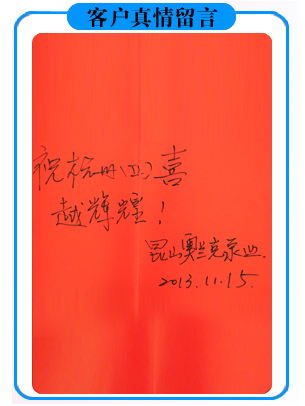 客户真情留言
祝杭州(工)喜
越辉煌！
昆山奥兰克泵业.
2013.11.15.